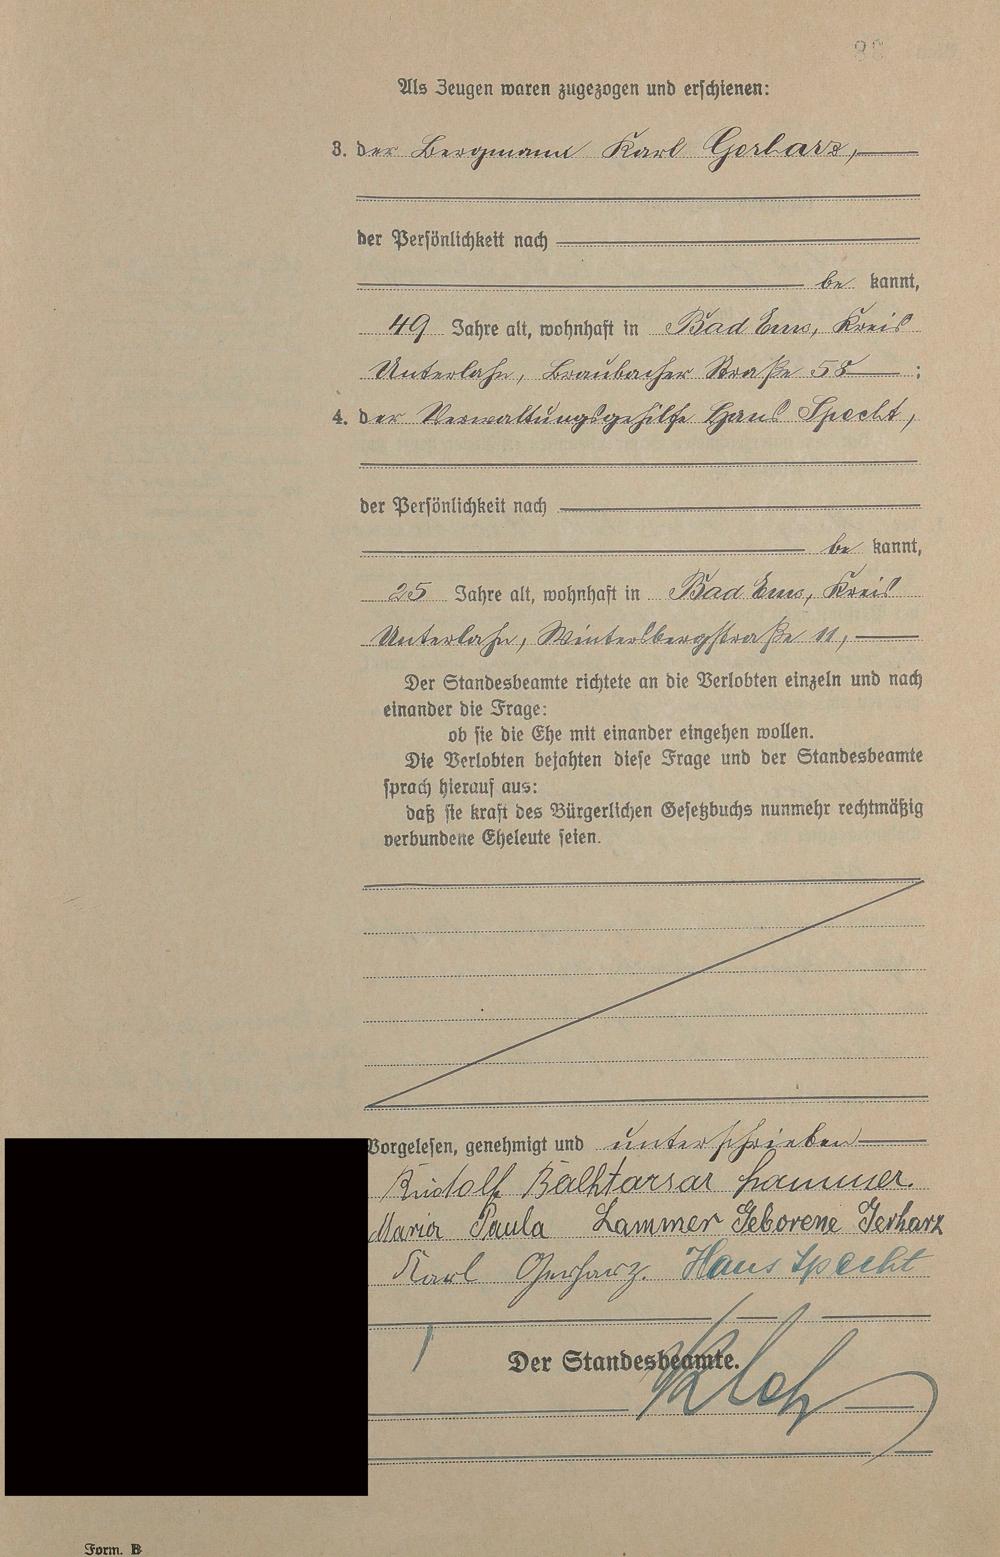 Als Zeugen waren zugezogen und erschienen:
3. der Bergmann Karl Gerharz,
der Persönlichkeit nach
be kannt,
49 Jahre alt, wohnhaft in Bad Ems, Kreis
Unterlahn, Braubacher Straße 58 ;
4. der Verwaltungsgehilfe Hans Specht,
der Persönlichkeit nach
be kannt,
25 Jahre alt, wohnhaft in Bad Ems, Kreis
Unterlahn, Wintersbergstraße 11,
Der Standesbeamte richtete an die Verlobten einzeln und nach
einander die Frage:
ob sie die Ehe mit einander eingehen wollen.
Die Verlobten bejahten diese Frage und der Standesbeamte
sprach hierauf aus:
daß sie kraft des Bürgerlichen Gesetzbuchs nunmehr rechtmäßig
verbundene Eheleute seien.
Vorgelesen, genehmigt und unterschrieben
Rudolf Balhtarsar Lammer.
Maria Paula Lammer Geborene Gerharz
Karl Gerharz. Hans Specht
Der Standesbeamte.
Form. B